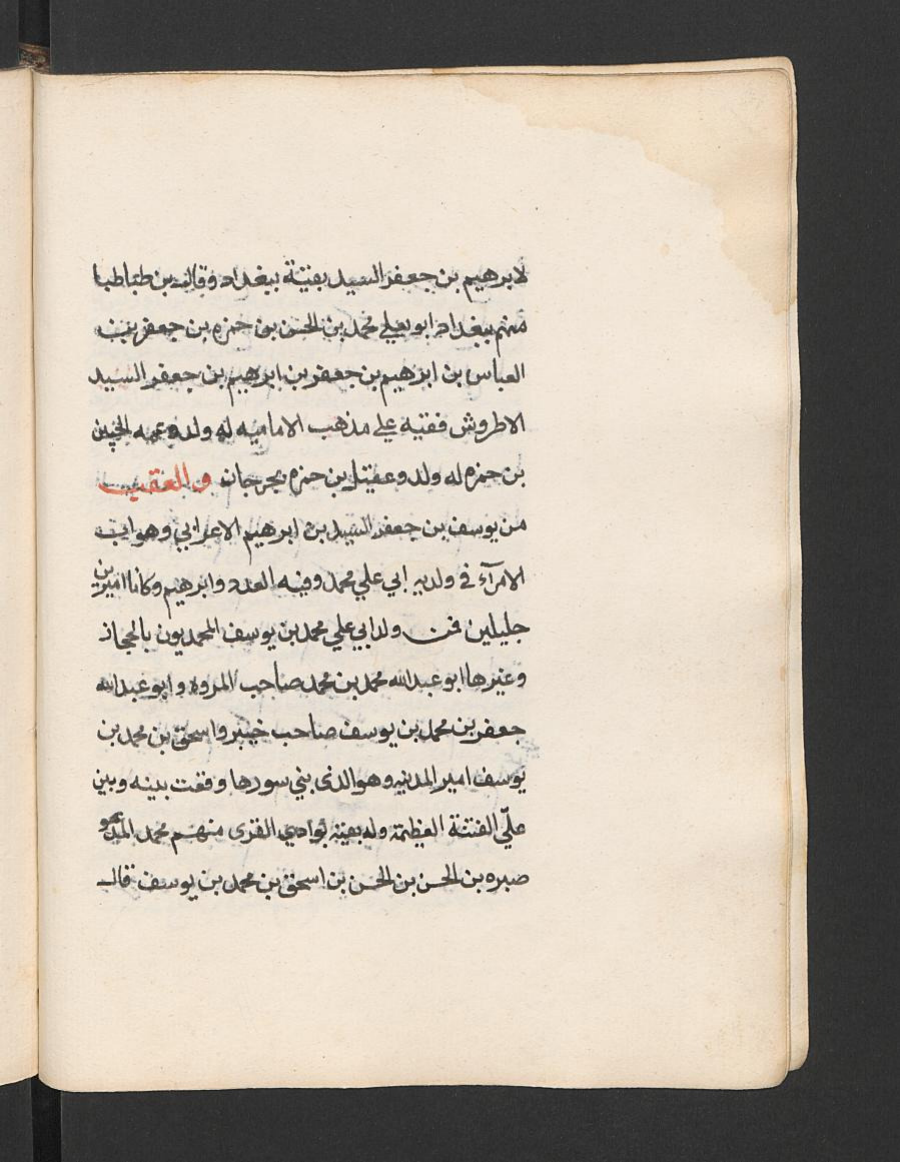 لابرهيم بن جعفر السيد بقيتة ببغداد وقال بن طباطبا
منهم ببغداد ابو يعلي محمد بن الحسن بن حمزه بن جعفر بن
العباس بن ابرهيم بن جعفر بن ابرهيم بن جعفر السيد
الاطروش فقيه علي مذهب الاماميه له ولد وعمه الحسين
بن حمزه له ولد وعقيل بن حمزه بجرجان والعقب
من يوسف بن جعفر السيد بن ابرهيم الاعرابي وهو ابو
الامرآء في ولديه ابي علي محمد وفيه العدد وابرهيم وكانا اميرين
جليلين فمن ولد ابي علي محمد بن يوسف المحمديون بالحجاز
وغيرها ابو عبدالله محمد بن محمد صاحب المروه وابو عبدالله
جعفر بن محمد بن يوسف صاحب خيبر واسحق بن محمد بن
يوسف امير المدينه وهو الذى بني سورها وقعت بينه وبين
علّي الفتنة العظيمة وله بقيته بوادي القرى منهم محمد
صبره بن الحسن بن الحسن بن اسحق بن محمد بن يوسف قال